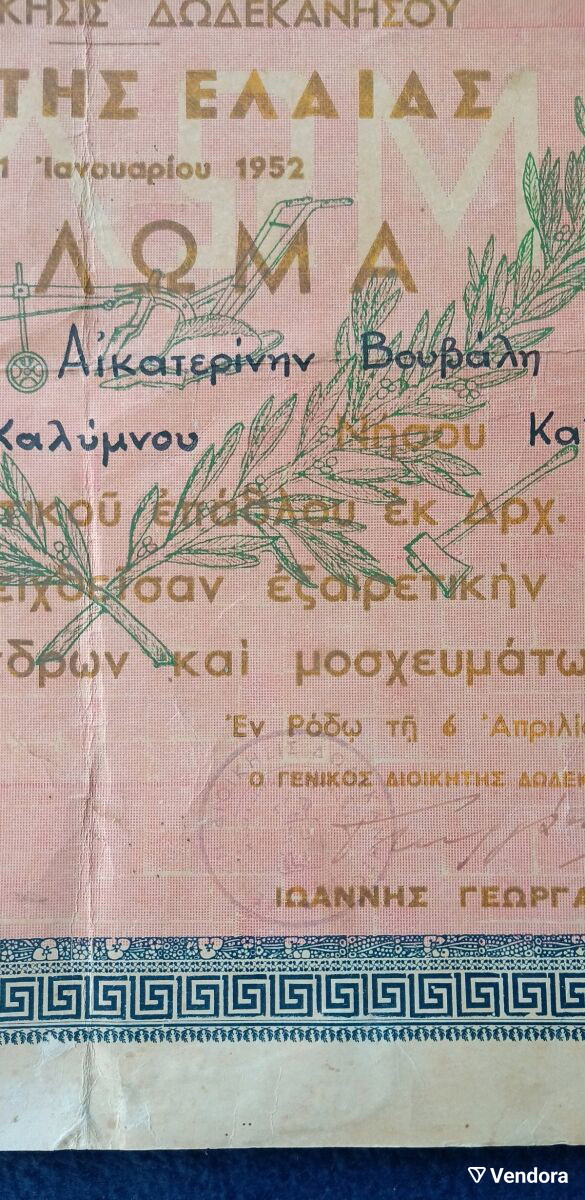 ΚΗΣΙΣ ΔΩΔΕΚΑΝΗΣΟΥ
ΤΗΣ ΕΛΑΙΑΣ
1 Ἰανουαρίου 1952
ΛΩΜΑ
Αἰκατερίνην Βουβάλη
Καλύμνου Νήσου Κα
τικοῦ ἐπάθλου ἐκ Δρχ.
ειχθεῖσαν ἐξαιρετικὴν
δρων καὶ μοσχευμάτω
Ἐν Ρόδῳ τῇ 6 Ἀπριλί
Ο ΓΕΝΙΚΟΣ ΔΙΟΙΚΗΤΗΣ ΔΩΔΕΚ
ΙΩΑΝΝΗΣ ΓΕΩΡΓΑ
Vendora